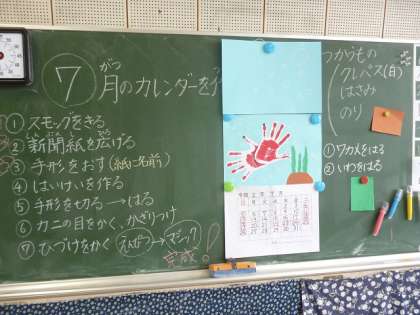 ⑦月のカレンダーを
がつ
つかうもの
クレパス(白)
はさみ
のり
① スモックをきる
② 新聞紙を広げる
③ 手形をおす(紙に名前)
④ はいけいを作る
⑤ 手形を切る→はる
⑥ カニの目をかく、かざりつけ
⑦ ひづけをかく えんぴつ→マジック
完成!
① ワカメをはる
② いわをはる